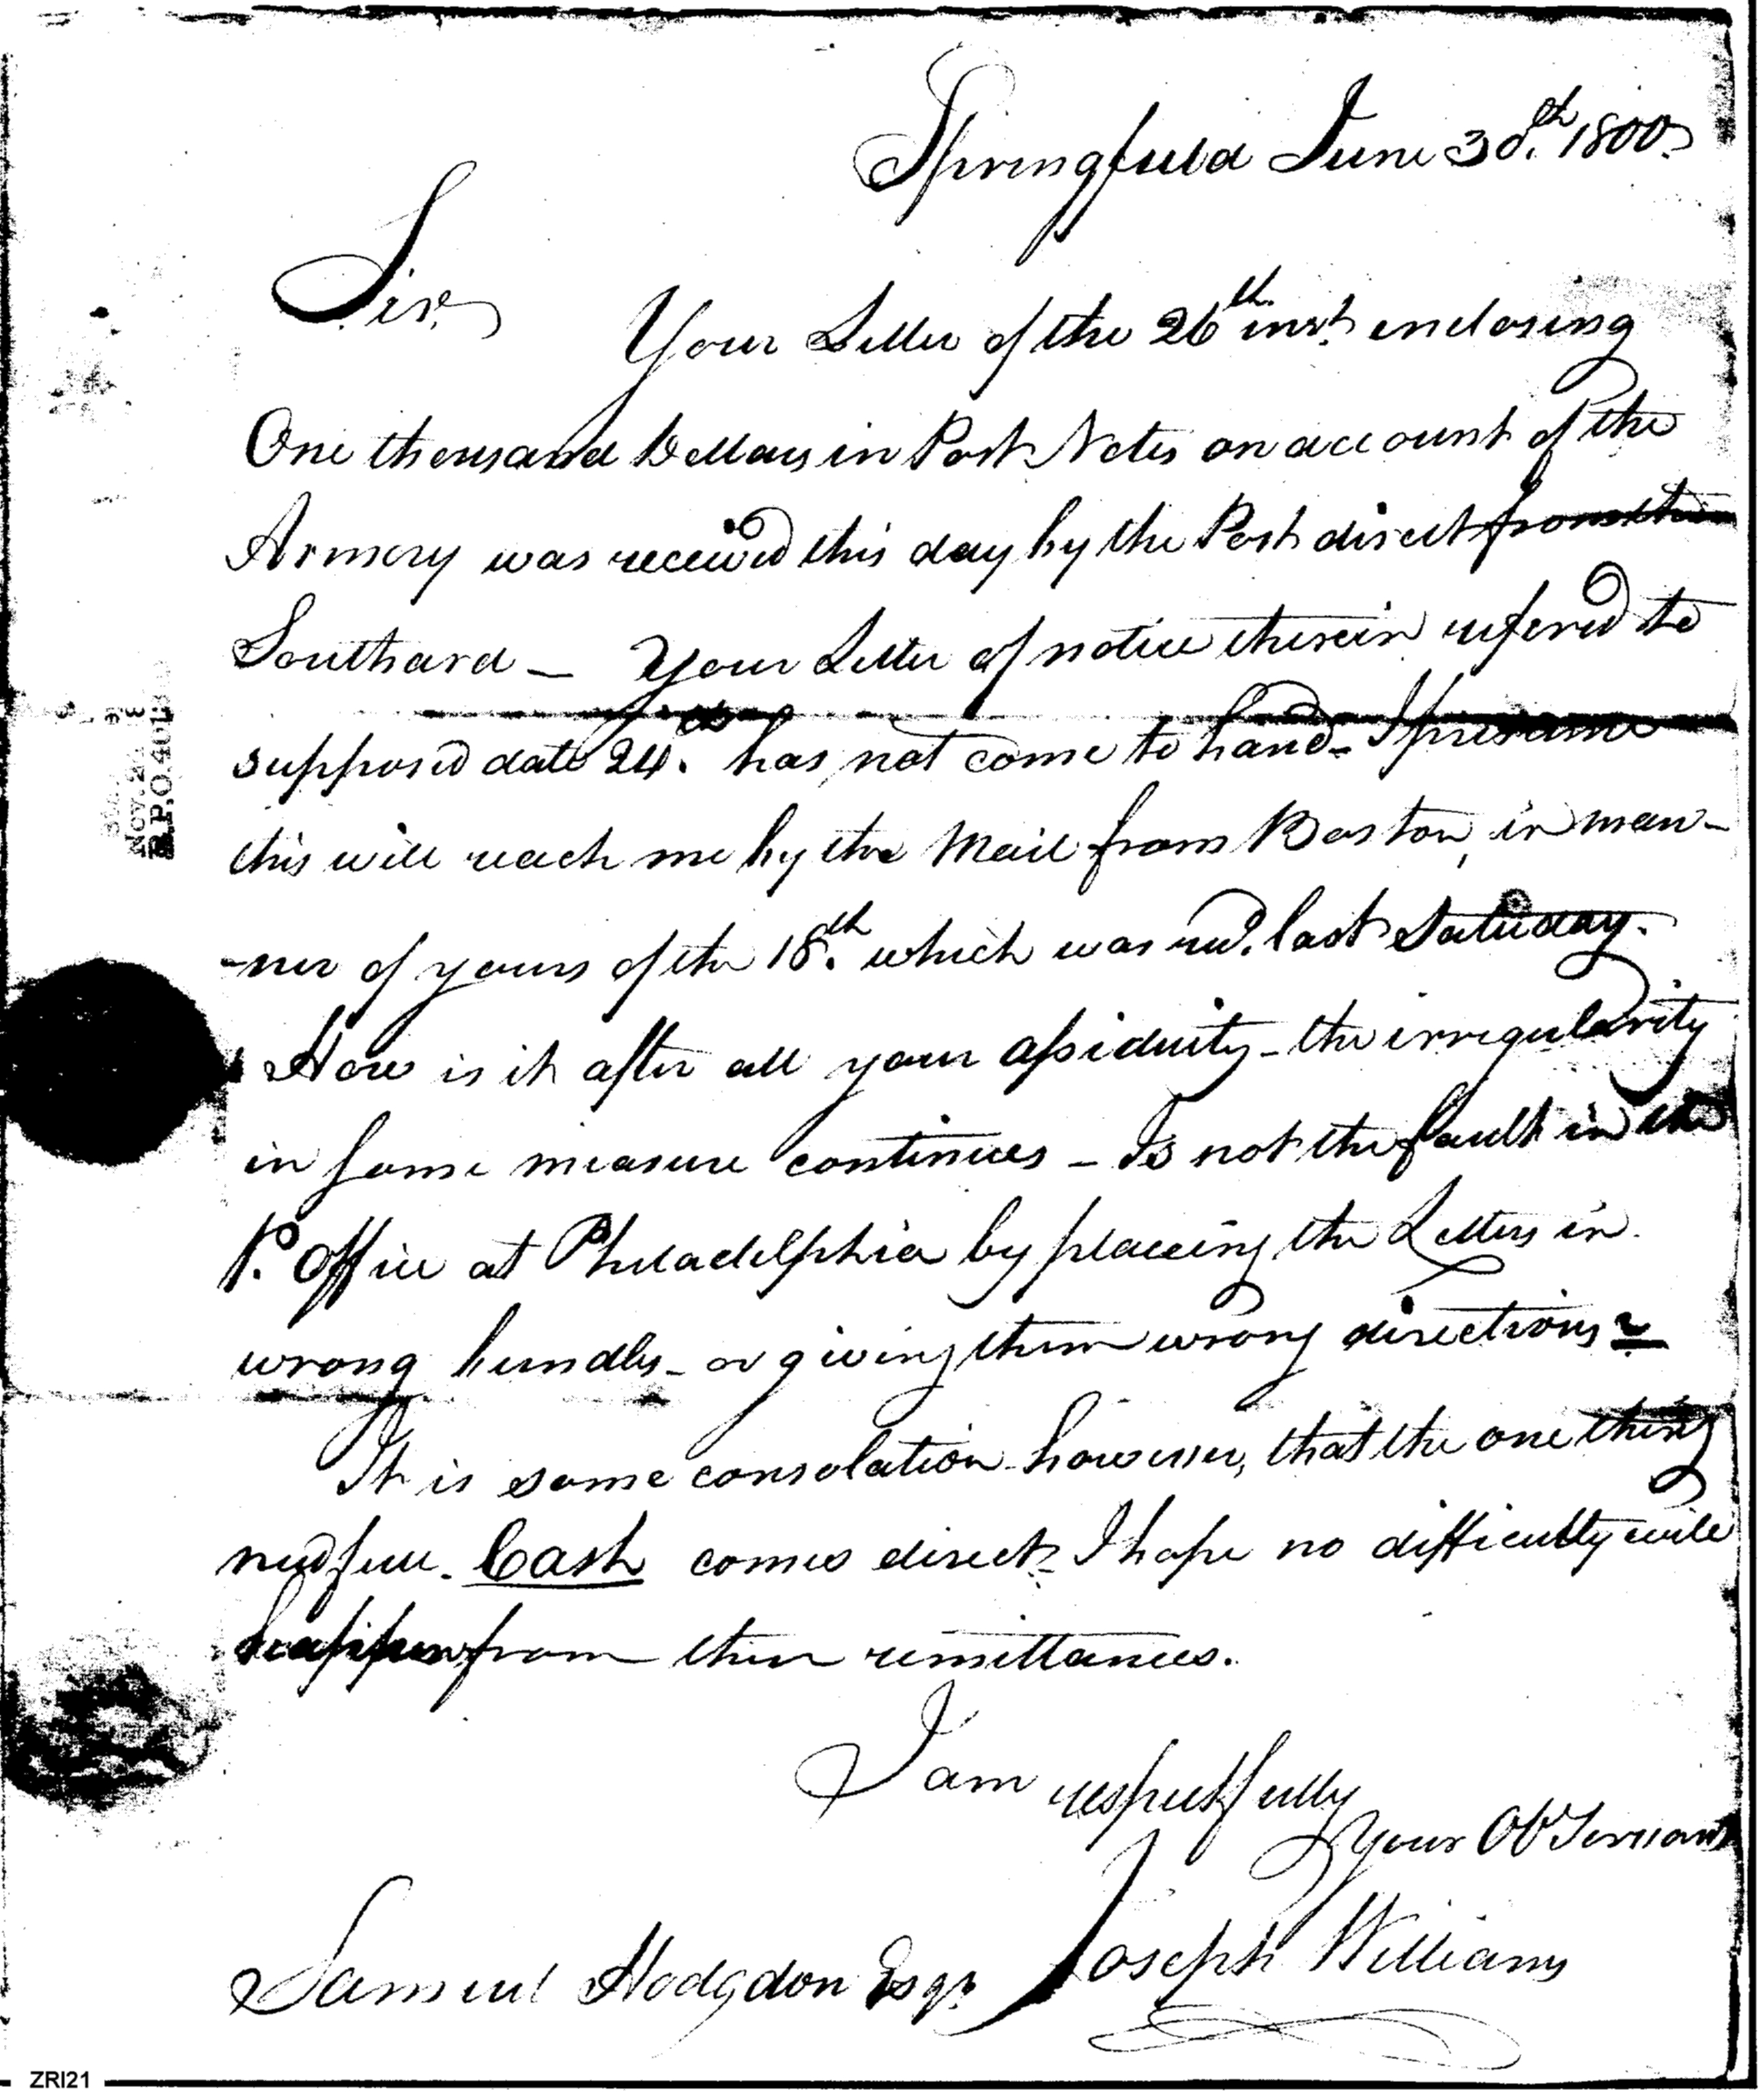 Springfield June 30th. 1800.
Sir.
Your Letter of the 26th inst. enclosing
One thousand Dollars in Post Notes on account of the
Armory was received this day by the Post direct from the
Southard – Your Letter of notice therein refered to
supposed date 24th. has not come to hand – I presume
this will reach me by the Mail from Boston, in man-
-ner of yours of the 18th. which was recd. last Saturday.
How is it after all your assiduity – the irregularity
in some measure continues – Is not the fault in the
P. Office at Philadelphia by placing the Letters in
wrong bundles – or giving them wrong directions?
It is some consolation however, that the one thing
needfull – Cash comes direct – I hope no difficulty will
happen from their remittances.
I am respectfully
Your Ob Servant
Joseph Williams
Samuel Hodgdon Esqr.
R.P.O. 401
ZRI21